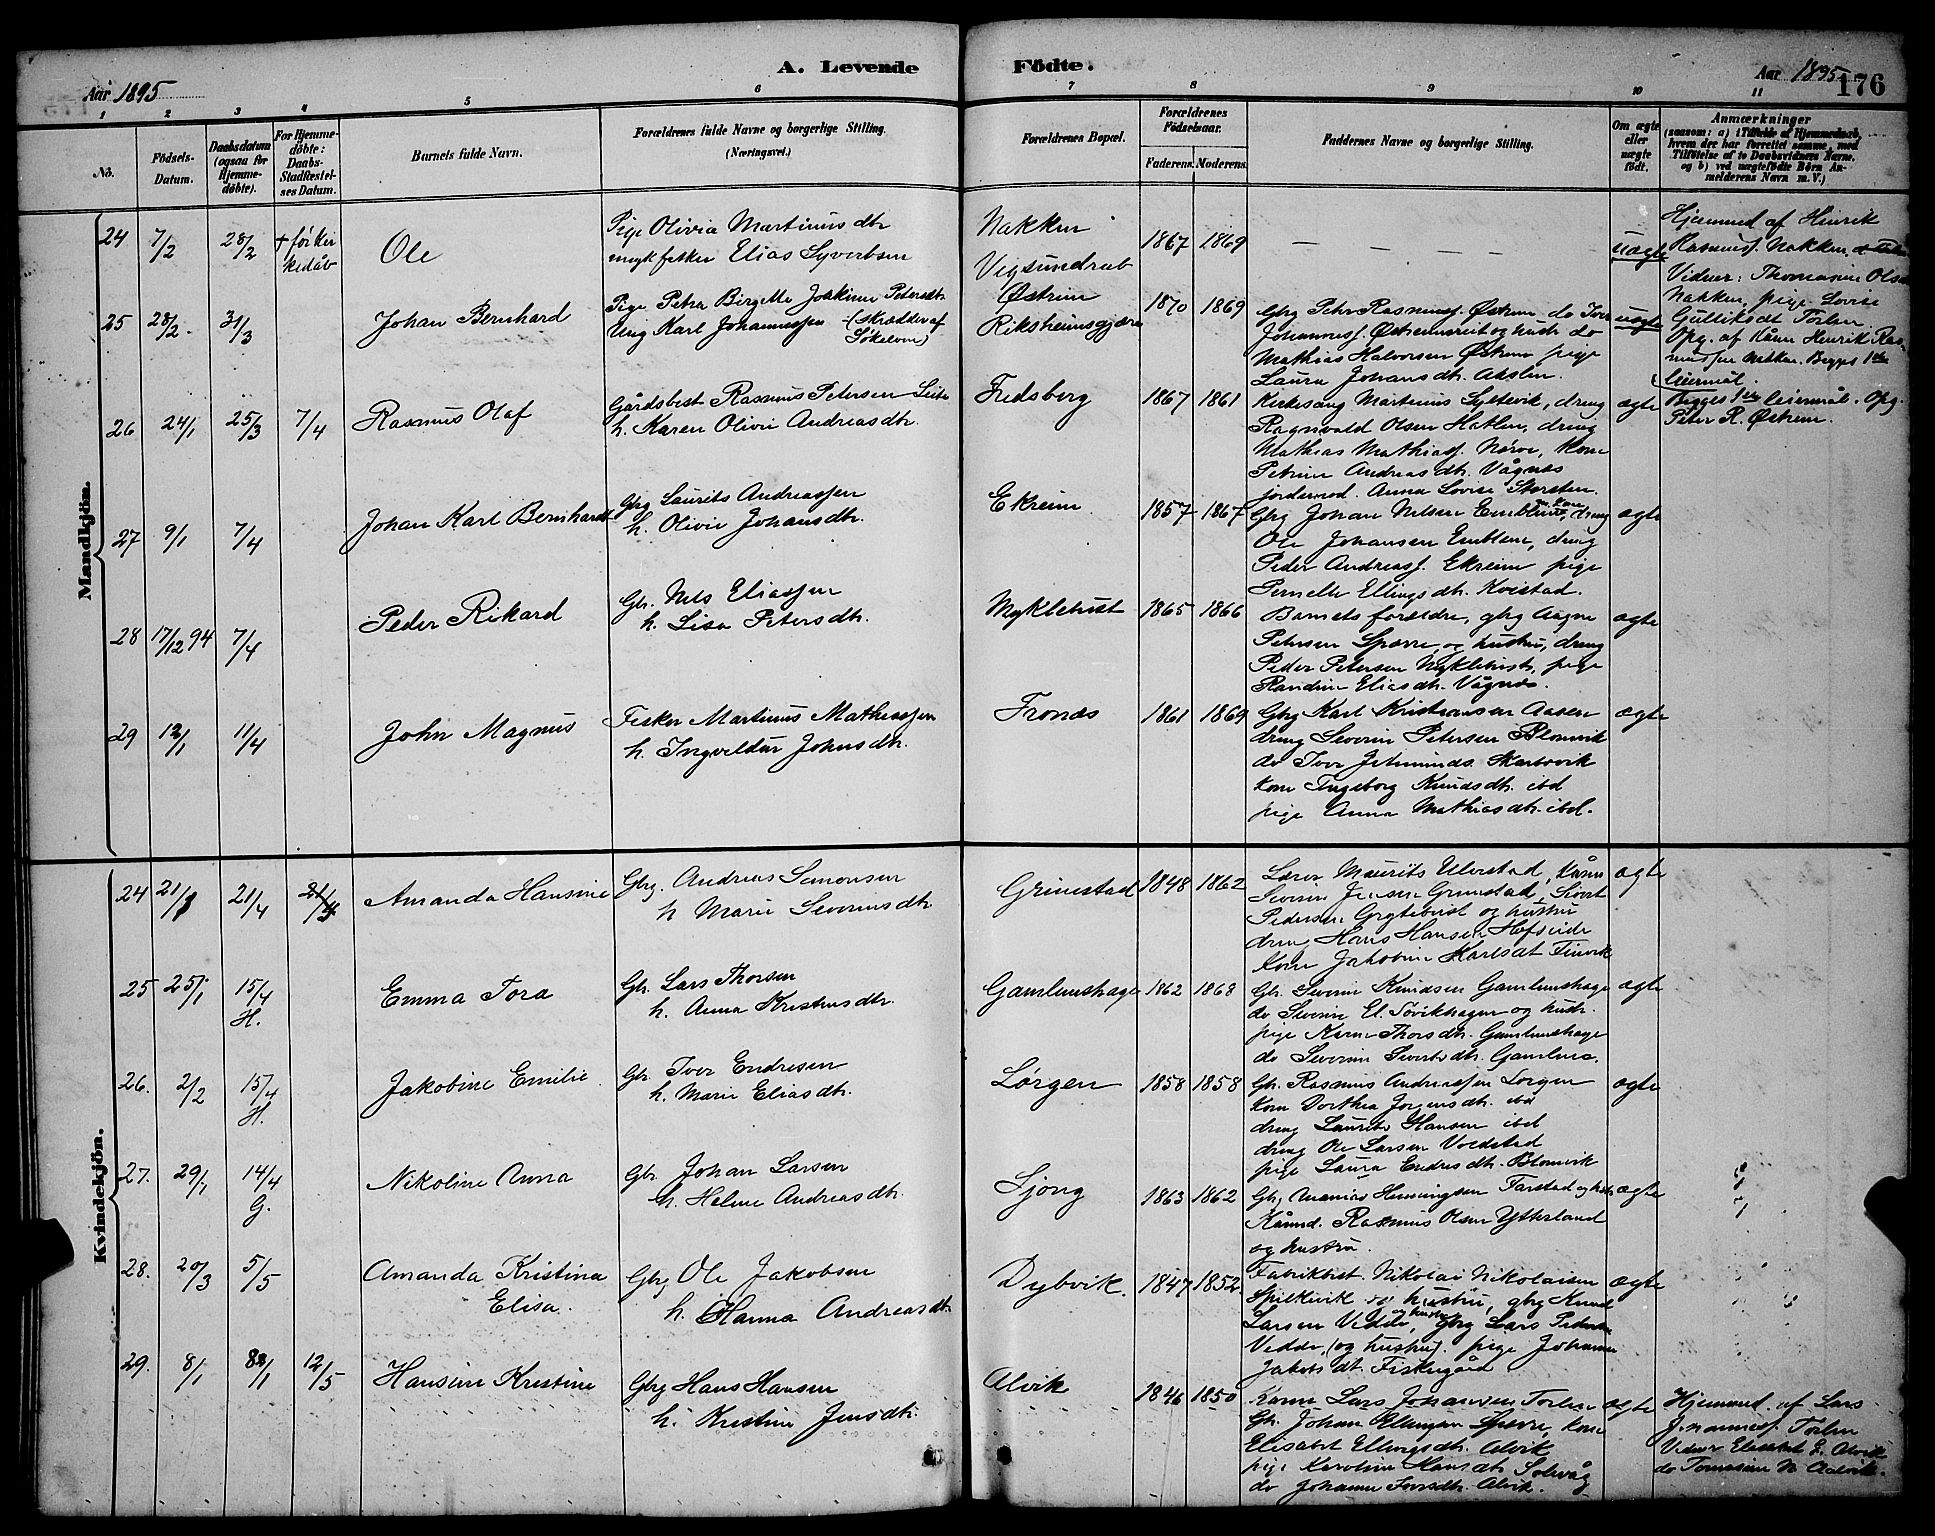 A. Levende Fødte.
Aar 1895
Aar 1895
176
1 2 3 4 5 6 7 8 9 10 11
No.
Födsels-
Datum.
Daabsdatum
(ogsaa for
Hjemme-
döbte).
For Hjemme-
döbte:
Daabs-
Stadfæstel-
ses Datum.
Barnets fulde Navn.
Forældrenes fulde Navne og borgerlige Stilling.
(Næringsvei.)
Forældrenes Bopæl.
Forældrenes
Födselsaar.
Faderens. Moderens.
Faddernes Navne og borgerlige Stilling.
Om ægte
eller
uægte
födt.
Anmærkninger
(saasom: a) i Tilfælde af Hjemmedaab,
hvem der har forrettet samme, med
Tilföielse af to Daabsvidners Navne,
og b) ved uægtefödte Börn An-
melderens Navn m. V.)
Mandkjön.
24 7/2 28/2 † før kir
kedåb
Ole
Pige Olivia Martinusdtr
ungk fisker Elias Syvertsen
Nakken
Vigsundrab
1867 1869
uægte
Hjemmed af Henrik
Rasmusf. Nakken
Vidner: Thomasine Ols
Nakken, pige Lovise
Gulliksdt Torlen
Opg. af Kånn Henrik Ras
mussen Nakken. Begges 1ste
leiermål.
25 28/2 31/3
Johan Bernhard
Pige Petra Birgitte Joakime Petersdtr
Ung Karl Johannessen (skrædder af
Søkelven)
Østrem
Riksheimsgjære
1870 1869
Gbrg Petr Rasmusf. Østrem do Iver
Johannesf. Østremsreit og hustr do
Mathias Halvorsen Østrem pige
Laura Johansdtr. Akslen.
uægte
Begges 1ste leiermål. Opg.
Peter R. Østrem.
26 24/1 25/3 7/4
Rasmus Olaf
Gårdsbest Rasmus Petersen
h. Karen Olivie Andreasdtr.
Fredsberg
1867 1861
Kirkesang Martinus Syltevik, dreng
Ragnvald Olsen Hatlen, dreng
Mathias Mathiasf. Nørve, kone
Petrine Andreasdtr. Vågnæs
jordemod. Anna Lovise Storsten.
ægte
27 9/1 7/4
Johan Karl Bernhard
Gbrg Laurits Andreassen
h. Olivie Johansdtr.
Ekreim
1857 1867
Gbrg Johan Nilsen Emblem, dreng
Ole Johansen Emblem, dreng
Peder Andreasf. Ekreim pige
Pernelle Ellingsdtr. Kvistad.
ægte
28 17/12 94 7/4
Peder Rikard
Gbr. Nils Eliassen
h. Lisa Petersdtr.
Myklebust
1865 1866
Barnets forældre, gbrg Aagne
Petersen Spærre og hustru, dreng
Peder Petersen Myklebust, pige
Randine Eliasdtr. Vågnæs.
ægte
29 12/1 11/4
John Magnus
Fisker Martinus Mathiassen
h. Ingvildur Johnsdtr.
Fronæs
1861 1869
Gbrg Karl Kristiansen Aasen
dreng Severin Petersen Blomvik
do Iver Jetmunds. Skarbøvik
kone Ingeborg Knudsdtr. ibd
pige Anna Mathiasdtr. ibd.
ægte
Kvindekjön.
24 21/1 21/4
Amanda Hansine
Gbrg. Andreas Simonsen
h Marie Severinsdtr.
Grimstad
1848 1862
Lærer Maurits Ulvestad, Kånn
Severin Jensen Grimstad, Sivert
Pedersen Grytebust og hustru
dren Hans Hansen Hofseide
kone Jakobine Karlsdt Finvik
ægte
25 25/1 15/4 H.
Emma Tora
Gbr. Lars Thorsen
h. Anna Kristensdtr.
Gamlemshage
1862 1868
Gbr. Severin Knudsen Gamlemshage
do Severin El. Søvikhagen og hustr.
pige Karen Thorsdtr. Gamlemshage
do Severine Sivertsdtr. Gamlem.
ægte
26. 2/2 15/4 H.
Jakobine Emilie
Gbr. Iver Endresen
h. Marie Eliasdtr.
Lørgen
1858 1858
Gbr. Rasmus Andreassen Lørgen
kone Dorthea Jørgensdtr. ibd
dreng Laurits Hansen ibd
dreng Ole Larsen Voldstad
pige Laura Endresdtr. Blomvik
ægte
27. 29/1 14/4 G.
Nikoline Anna
Gbr. Johan Larsen
h. Helene Andreasdtr.
Ljong
1863 1862
Gbrg Mamias Hemingsen Tarstad og hustr
Kånnd. Rasmus Olsen Ytterland
og hustru.
ægte
28. 20/3 5/5
Amanda Kristina
Elisa.
Gbrg Ole Jakobsen
h. Hanna Andreasdtr.
Dybvik.
1847 1852
Fabrikbest. Nikolai Nikolaisen
Spilkevik og hustru, gbrg Knud
Larsen Vedde, og hustr. Gbrg Lars Pedersen
Vedde, (og hustru). pige Johanne
Jakobsdt. Fiskergård
ægte
29. 8/1 8/1 12/5
Hansine Kristine
Gbrg Hans Hansen
h. Kristine Jensdtr.
Alvik
1846 1850
Kånn Lars Johansen Torlen
Gbr. Johan Ellingsen Spærre, kone
Elisabet Ellingsdtr. Alvik
pige Karoline Hansdtr. Solevåg
do Johanne Iversdtr. Alvik.
ægte
Hjemmed. af Lars
Johannesf. Torlen
Vidner Elisabet E. Alvik
do Tomasine N. Aalvik.